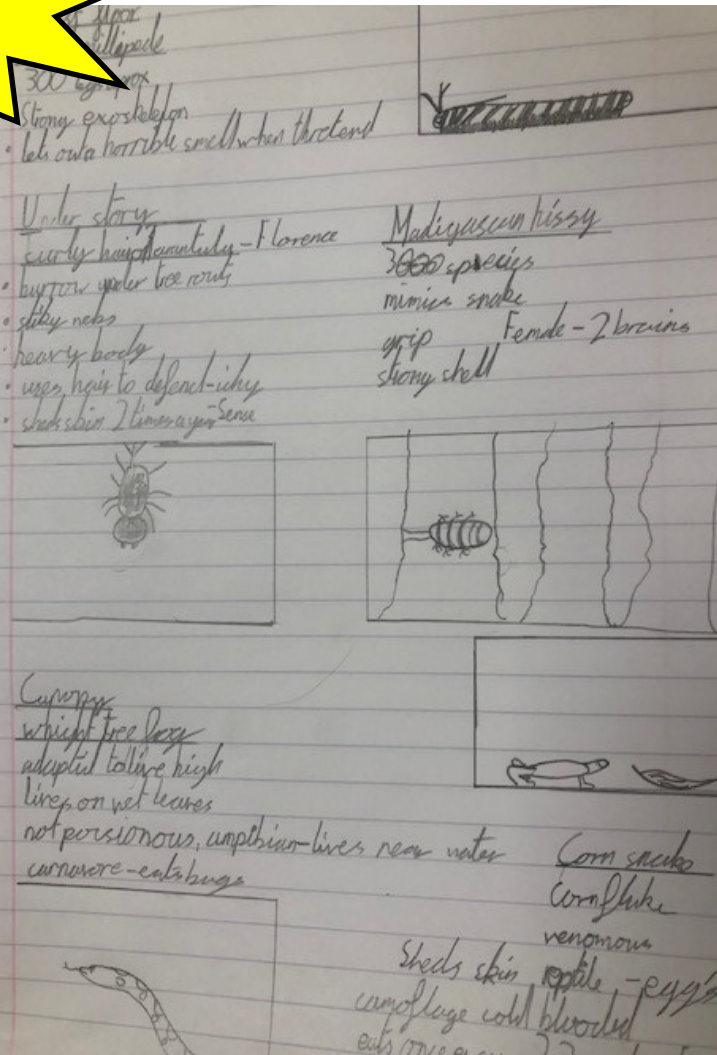 floor
illipede
300 legs
Strong exoskeleton
• lets out a horrible smell when thretend
Under story
curly hair tarantuly - Florence
• burrow under tree routs
• stiky nebs
• heavy body
• uses hair to defend - ichy
• sheds skin 2 times a year - Sense
Madigascan hissy
3000 species
mimics snake
grip Female - 2 brains
strong shell
Canopy
whight tree frog
adapted to live high
lives on wet leaves
not persionous, ampibian - lives near water
carnavore - eats bugs
Corn snake
Cornfluke
venomous
Sheds skin reptile - egg's
camoflage cold blooded
eats once